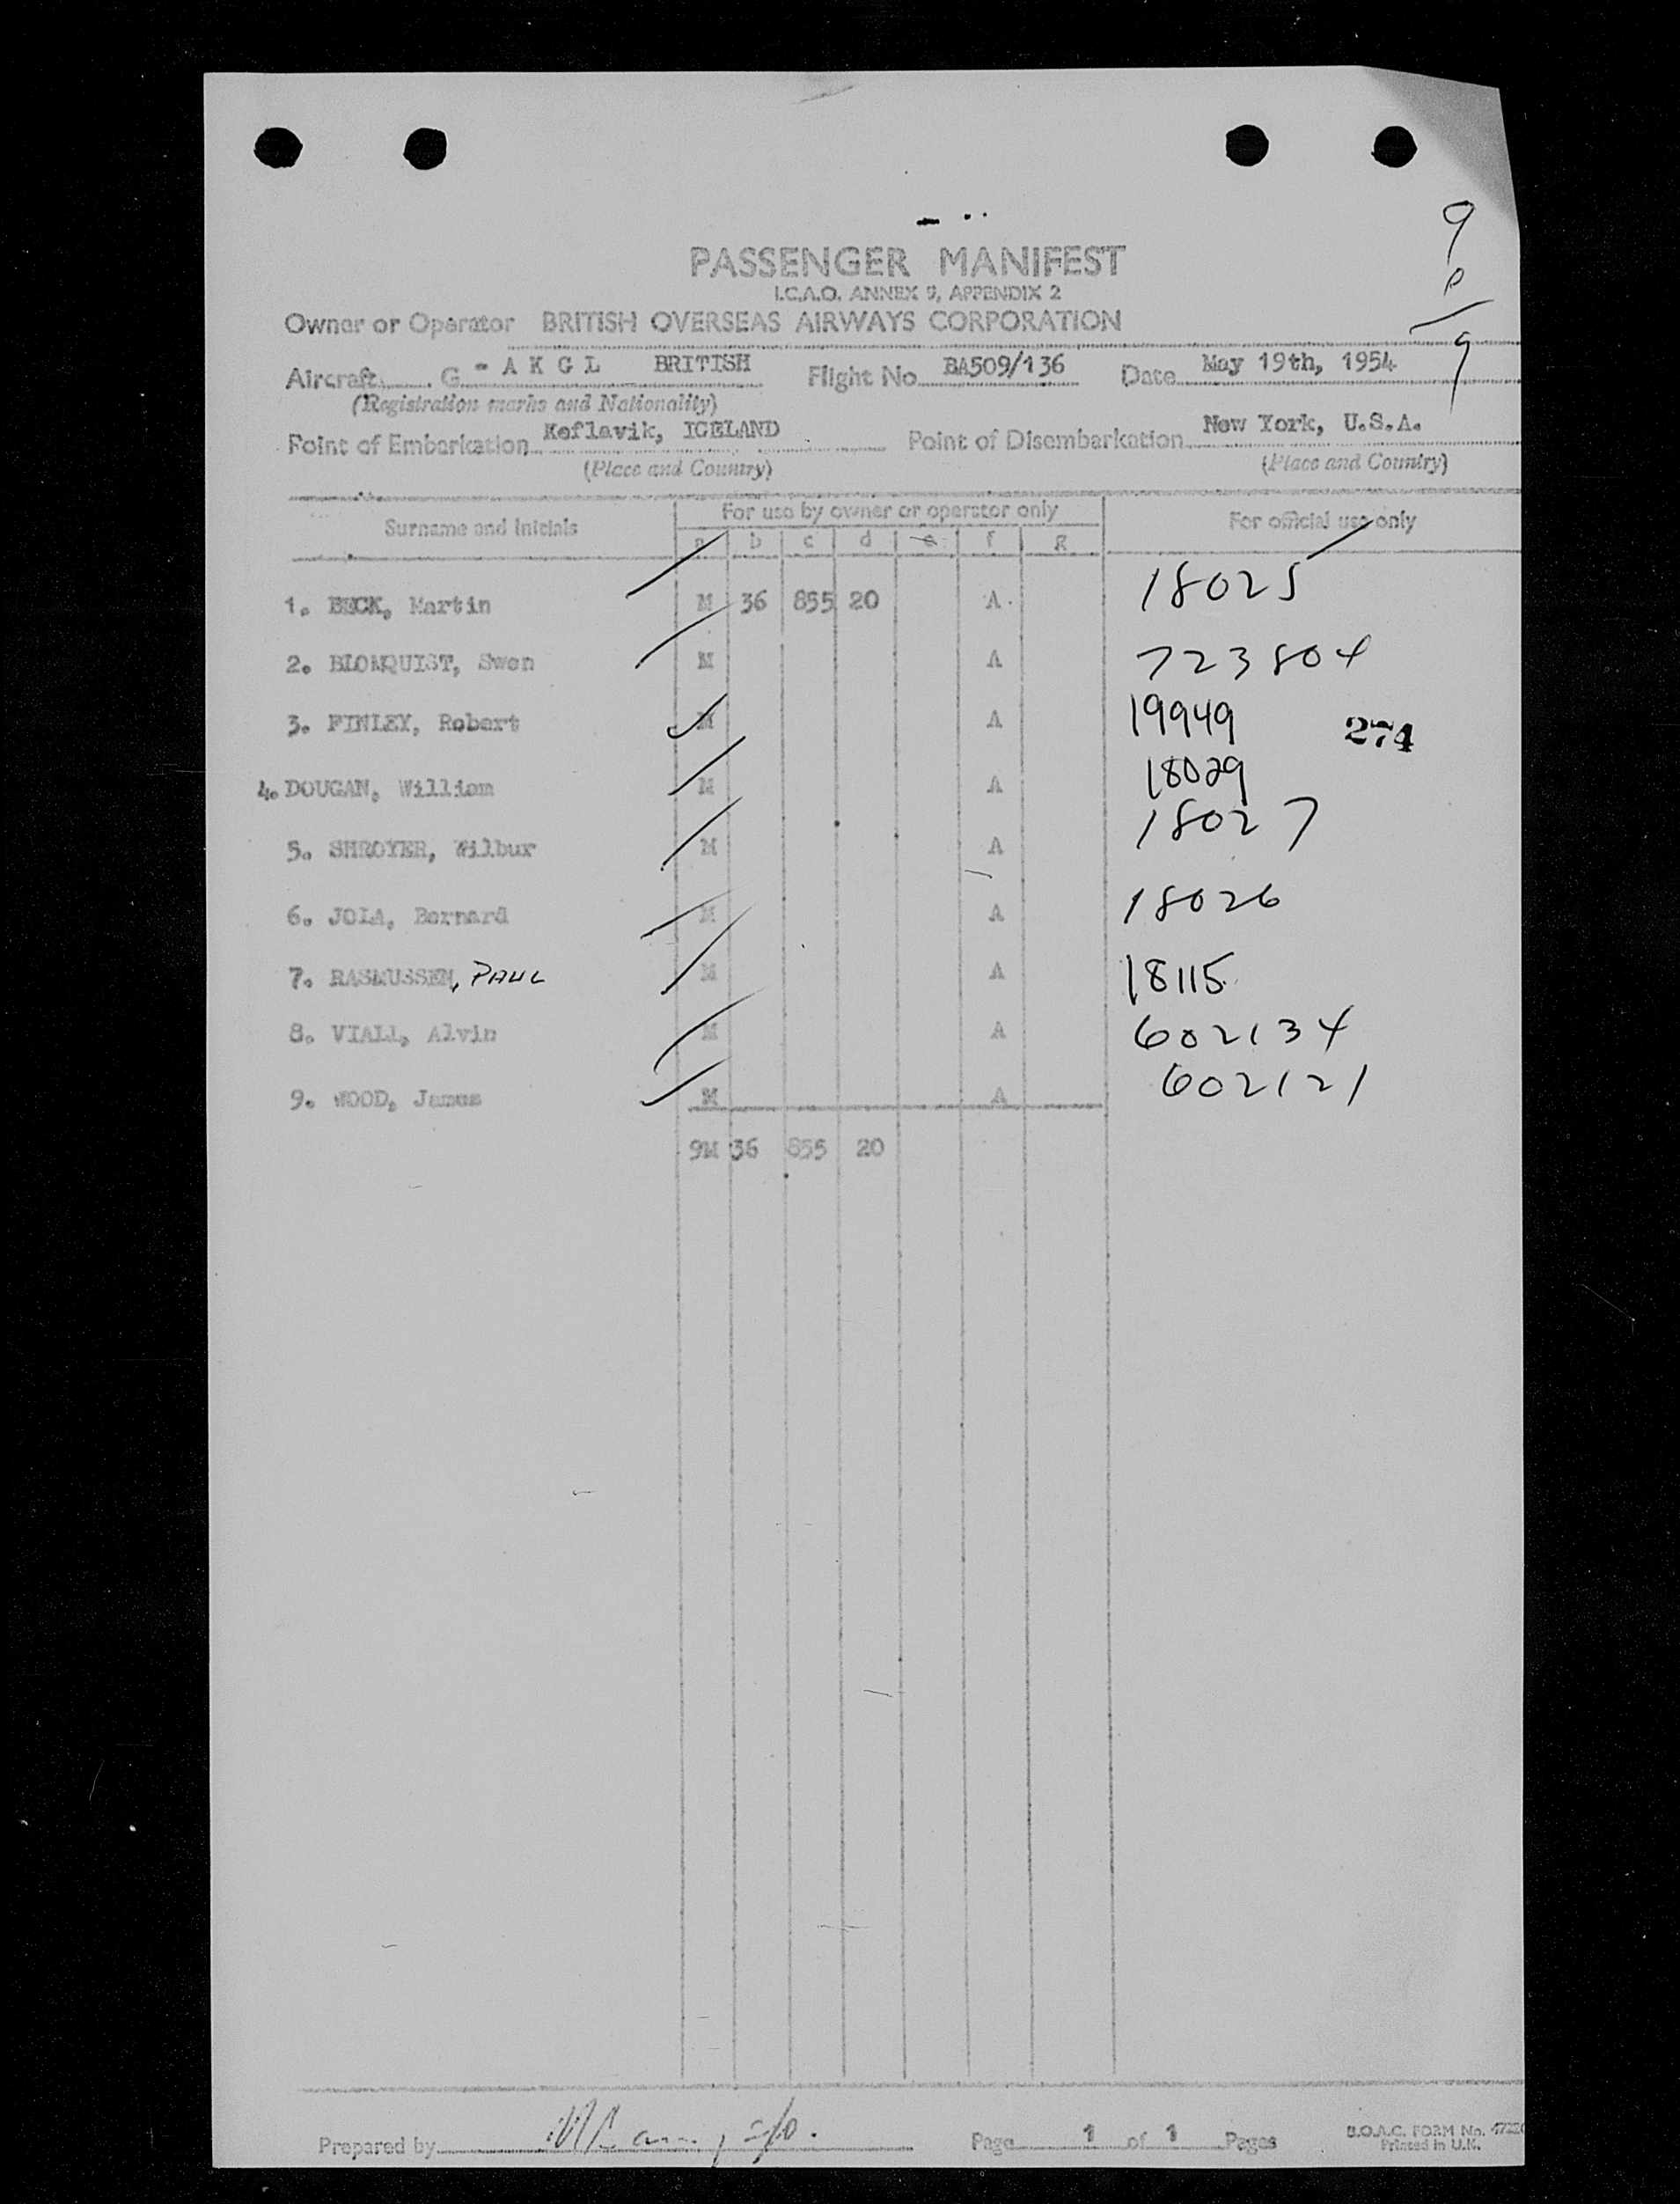 9
0
9
PASSENGER MANIFEST
I.C.A.O. ANNEX 9, APPENDIX 2
Owner or Operator BRITISH OVERSEAS AIRWAYS CORPORATION
Aircraft G - A K G L BRITISH Flight No BA509/136 Date May 19th, 1954
(Registration marks and Nationality)
Point of Embarkation Keflavik, ICELAND Point of Disembarkation New York, U.S.A.
(Place and Country) (Place and Country)
Surname and Initials For use by owner or operator only For official use only
a b c d e f g
1. BECK, Martin M 36 855 20 A 18025
2. BLOMQUIST, Swen M A 723804
3. FINLEY, Robert M A 19949
274
4. DOUGAN, William M A 18029
5. SHROYER, Wilbur M A 18027
6. JOLA, Bernard M A 18026
7. RASMUSSEN, PAUL M A 18115
8. VIALL, Alvin M A 602134
9. WOOD, James M A 602121
9M 36 855 20
Prepared by Page 1 of 1 Pages
B.O.A.C. FORM No.
Printed in U.K.